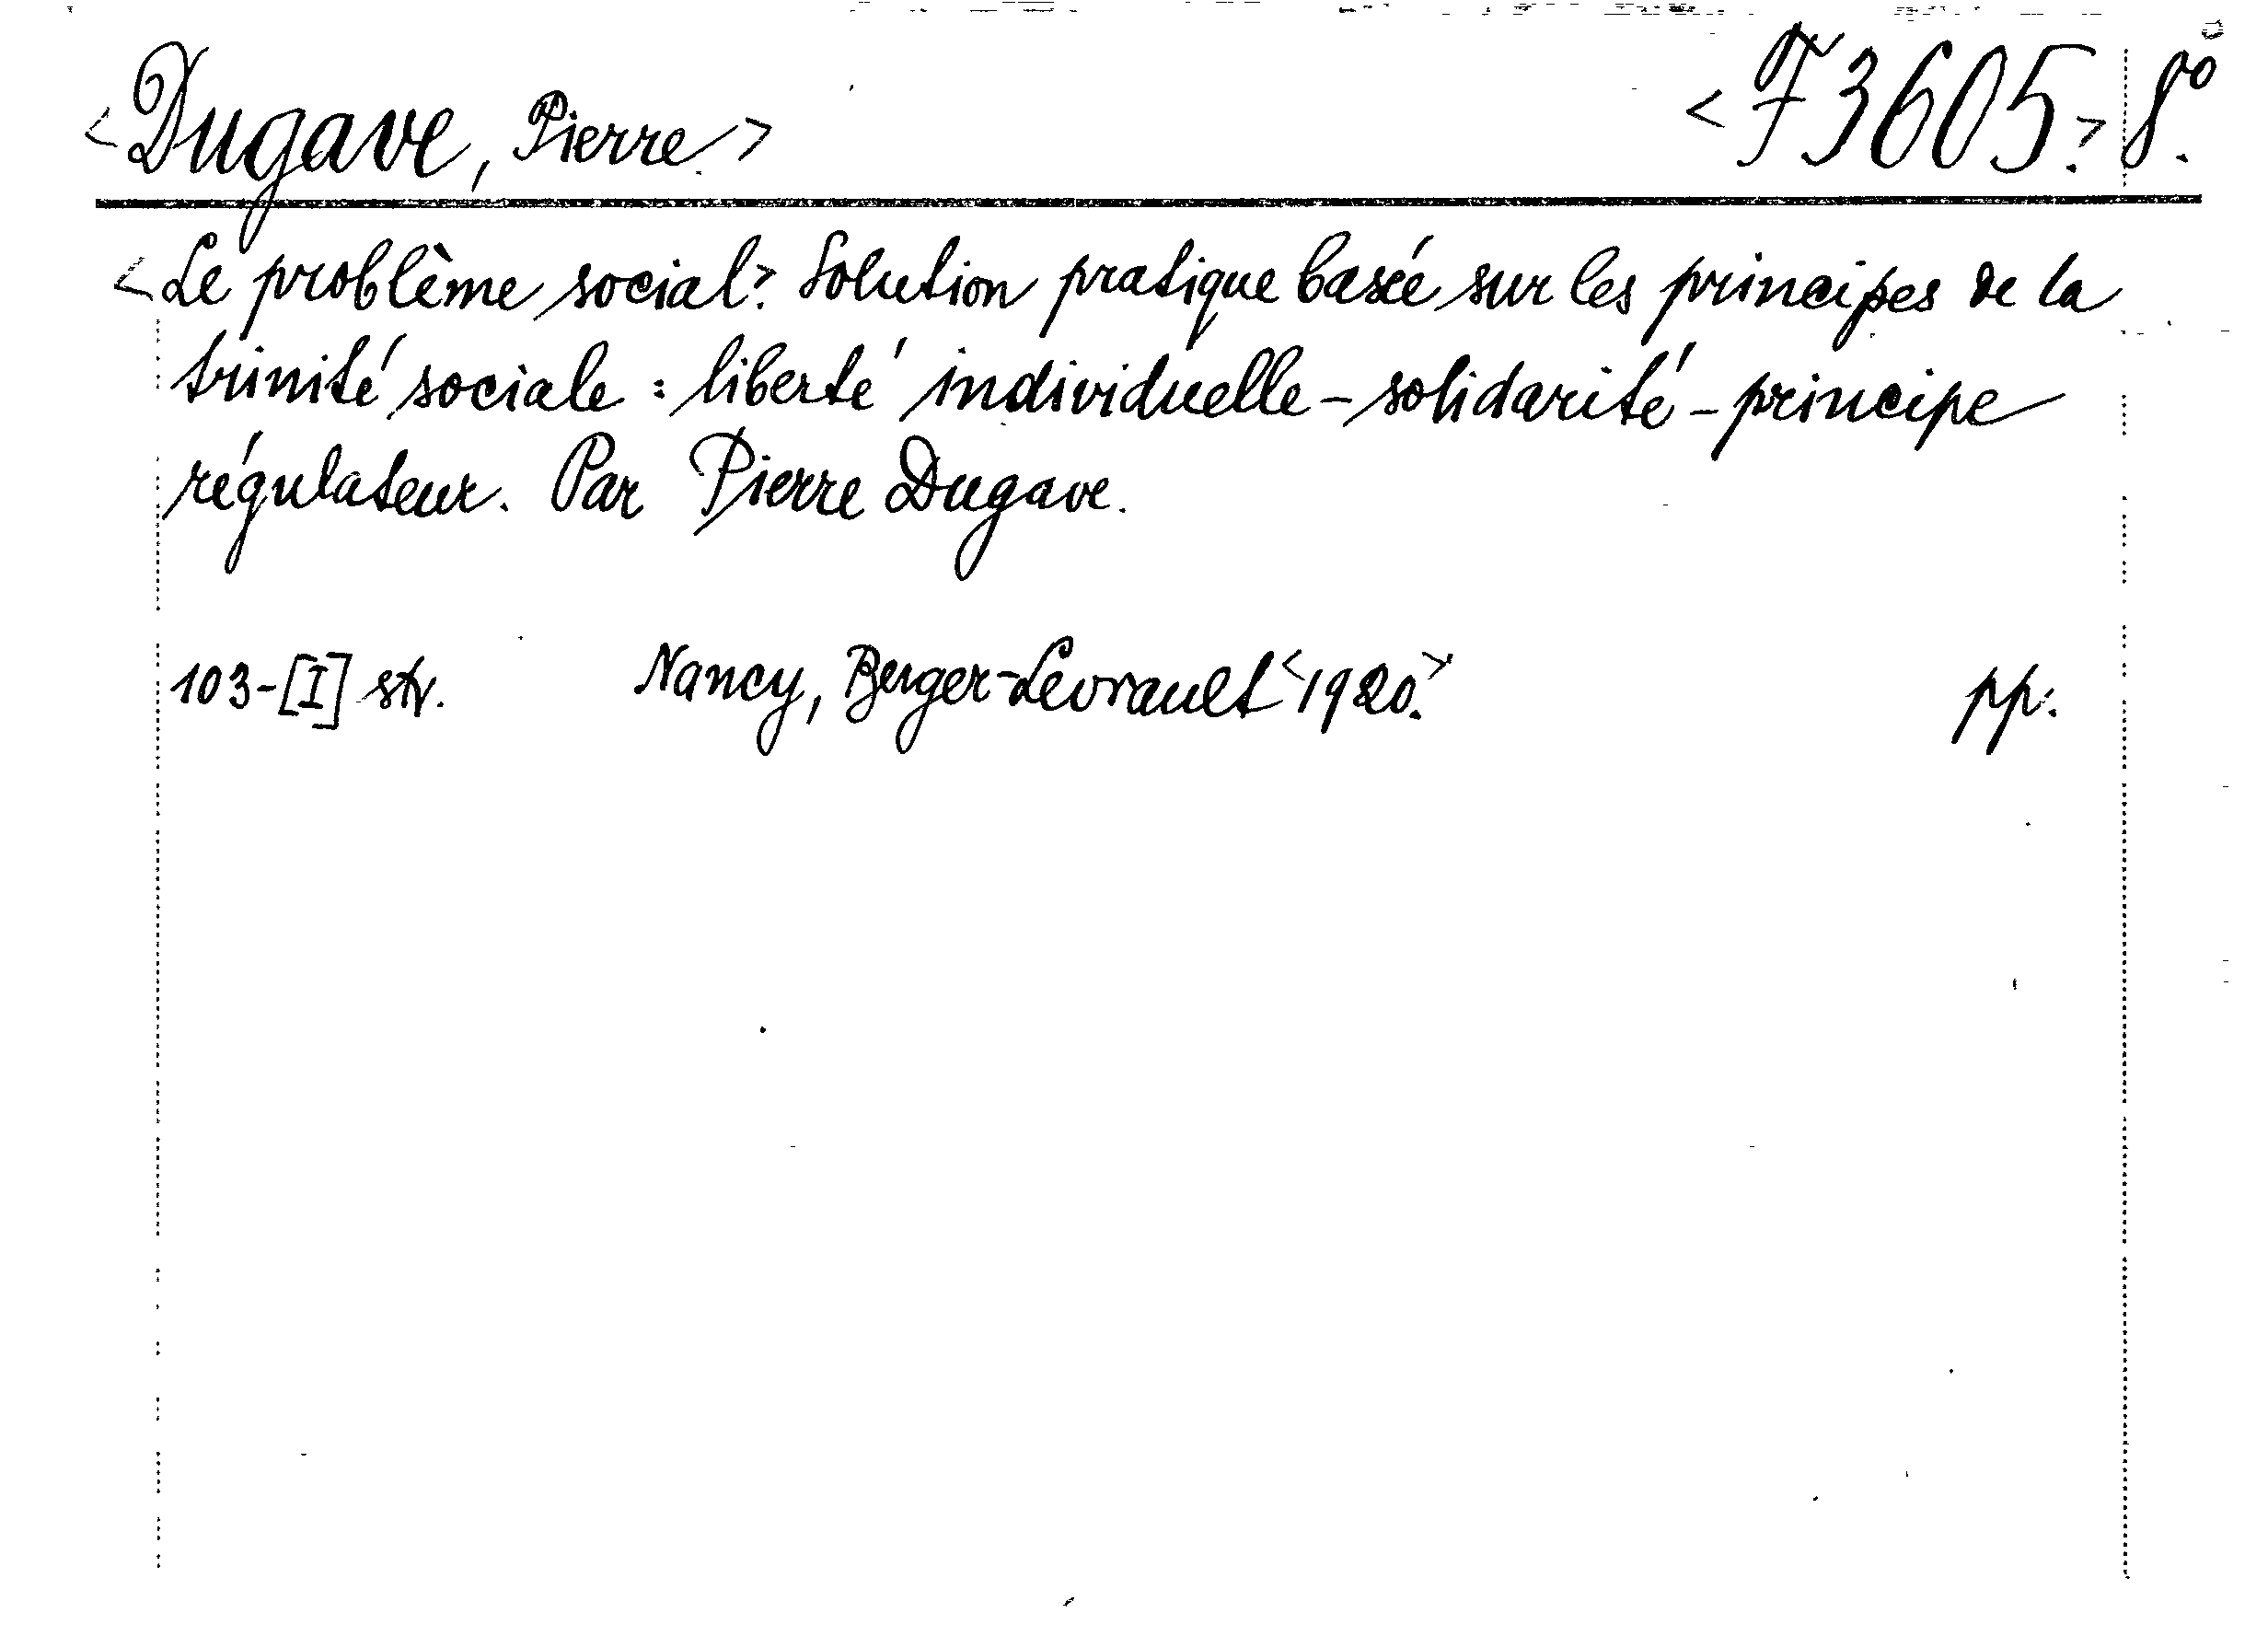 <Dugave, Pierre.> <F 3605.> 8°.
<Le problème social.> Solution pratique basée sur les principes de la
trinité sociale : liberté individuelle – solidarité – principe
régulateur. Par Pierre Dugave.
103-[I] str. Nancy, Berger-Levrault <1920.> pp.